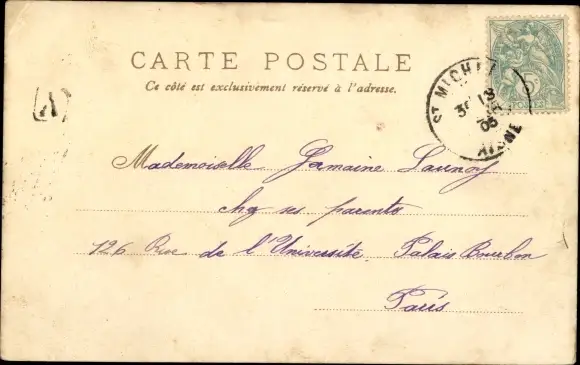 CARTE POSTALE
Ce côté est exclusivement réservé à l'adresse.
Mademoiselle Germaine Launoy
chez ses parents
126 Rue de l'Université. Palais Bourbon
Paris
ST MICHEL
13
05
AISNE
5
POSTES
A